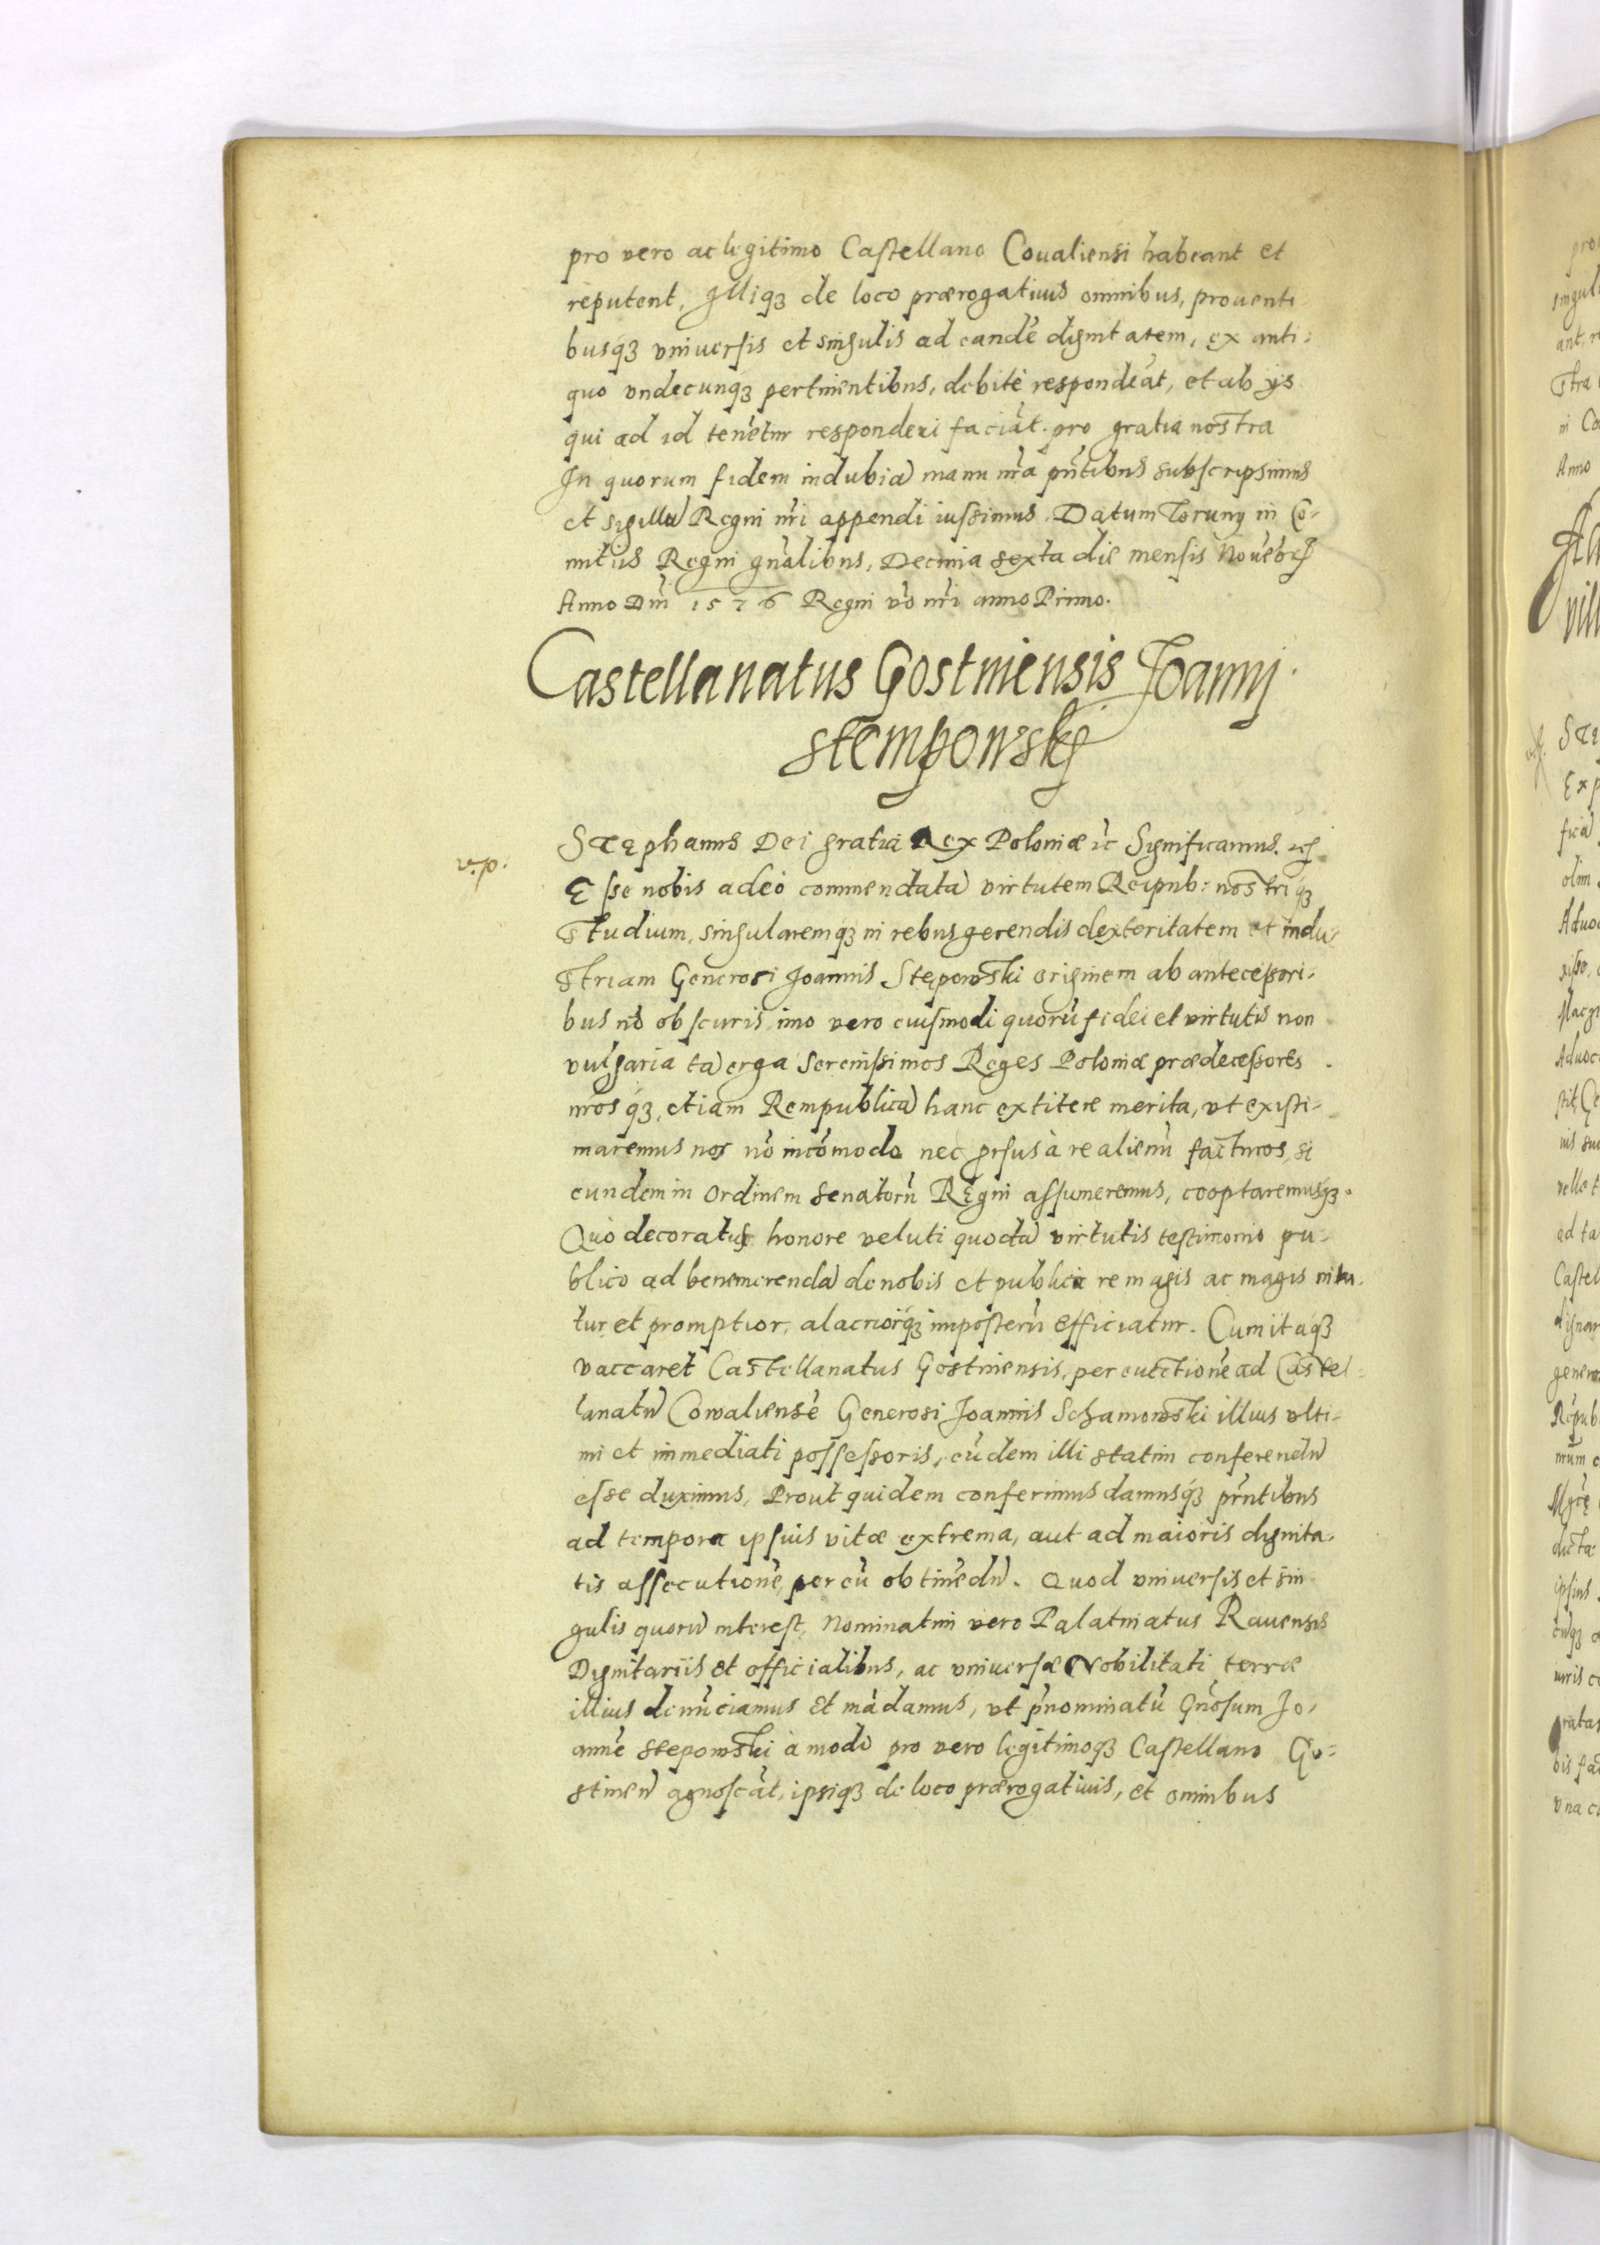 pro vero ac legitimo Castellano Coualiensi habeant et
reputent, Illiq3 de loco prærogatiuis omnibus, prouenti
busq́3 vniuersis et singulis ad eandẽ dignitatem, ex anti:
quo vndecunq́3 pertinentibus, debitè respondeãt, et ab ijs
qui ad id tenẽtur responderi faciãt. pro gratia nostra
In quorum fidem indubiã manu nr̃a pñtibus subscripsimus
et sigillũ Regni nr̃i appendi iussimus. Datum Toruny in Cõ-
mitijs Regni gñalibus, Decima sexta die mensis Nouẽbr̃
Anno Dñi 1576 Regni vo nr̃i anno Primo.
Castellanatus Gostinensis Joannj
Stempowskj
v. p.
Stephanus Dei gratia Rex Poloniæ &c Significamus. &c
Esse nobis adeò commendatã virtutem Reipub: nostriq́3
studium, singularemq́3 in rebus gerendis dexteritatem et indu-
striam Generosi Joannis Stępowski originem ab antecessori-
bus nõ obscuris, imo vero euismodi quorũ fidei et virtutis non
vulgaria tã erga Serenissimos Reges Poloniæ prædecessores
nr̃os q́3, etiam Rempublicã hanc extitere merita, vt existi-
maremus nos nõ incõmodo nec prsus à re alienũ facturos, si
eundem in ordinem Senatorũ Regni assumeremus, cooptaremusq́3.
Quò decoratus honore veluti quodã virtutis testimonio pu-
blico ad benemerendã de nobis et publica re magis ac magis nita-
tur et promptior, alacriorq́3 imposterũ efficiatur. Cum itaq́3
vaccaret Castellanatus Gostinensis, per euectionẽ ad Castel-
lanatũ Cowaliensẽ Generosi Joannis Schamowski illius vlti-
mi et immediati possessoris, eũdem illi statim conferendũ
esse duximus, Prout quidem conferimus damusq́3 pr̃ntibus
ad tempora ipsius vitæ extrema, aut ad maioris dignita-
tis assecutionẽ, per eũ obtinẽdũ. Quod vniuersis et sin
gulis quorũ interest, Nominatim vero Palatinatus Rauensis
Dignitarijs et officialibus, ac vniuersæ Nobilitati terræ
illius denũciamus et mãdamus, vt p̃nominatũ Gñosum Jo-
annẽ Stepowski à modo pro vero legitimoq́3 Castellano Go-
stinen̄ agnoscãt, ipsiq́3 de loco prærogatiuis, et omnibus